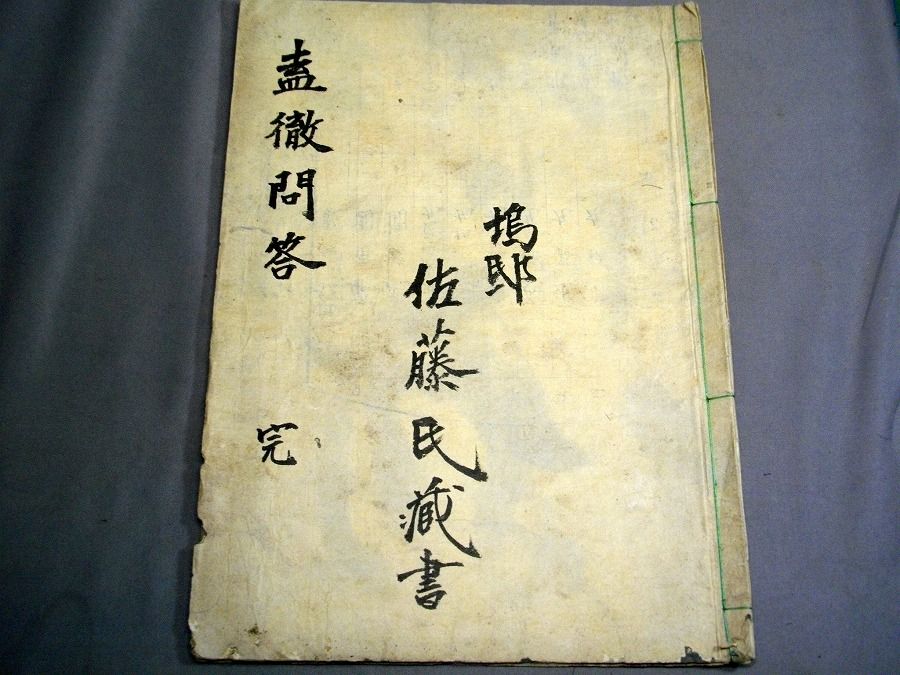 塢邸
佐藤氏藏書
盍徹問答
完